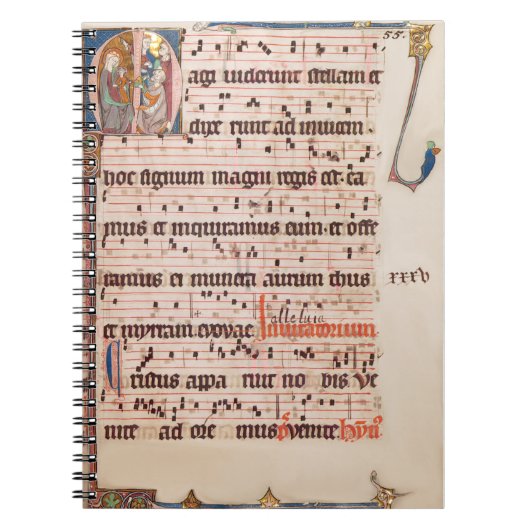 55.
agi viderunt stellam et
dixe runt ad invicem
hoc signum magni regis est ea
mus et inquiramus eum et offe
ramus ei munera aurum thus
xxxv
alleluia
et myrram evovae Invitatorium
Cristus appa ruit no bis ve
nite ad ore mus p̄s venite hȳn̄